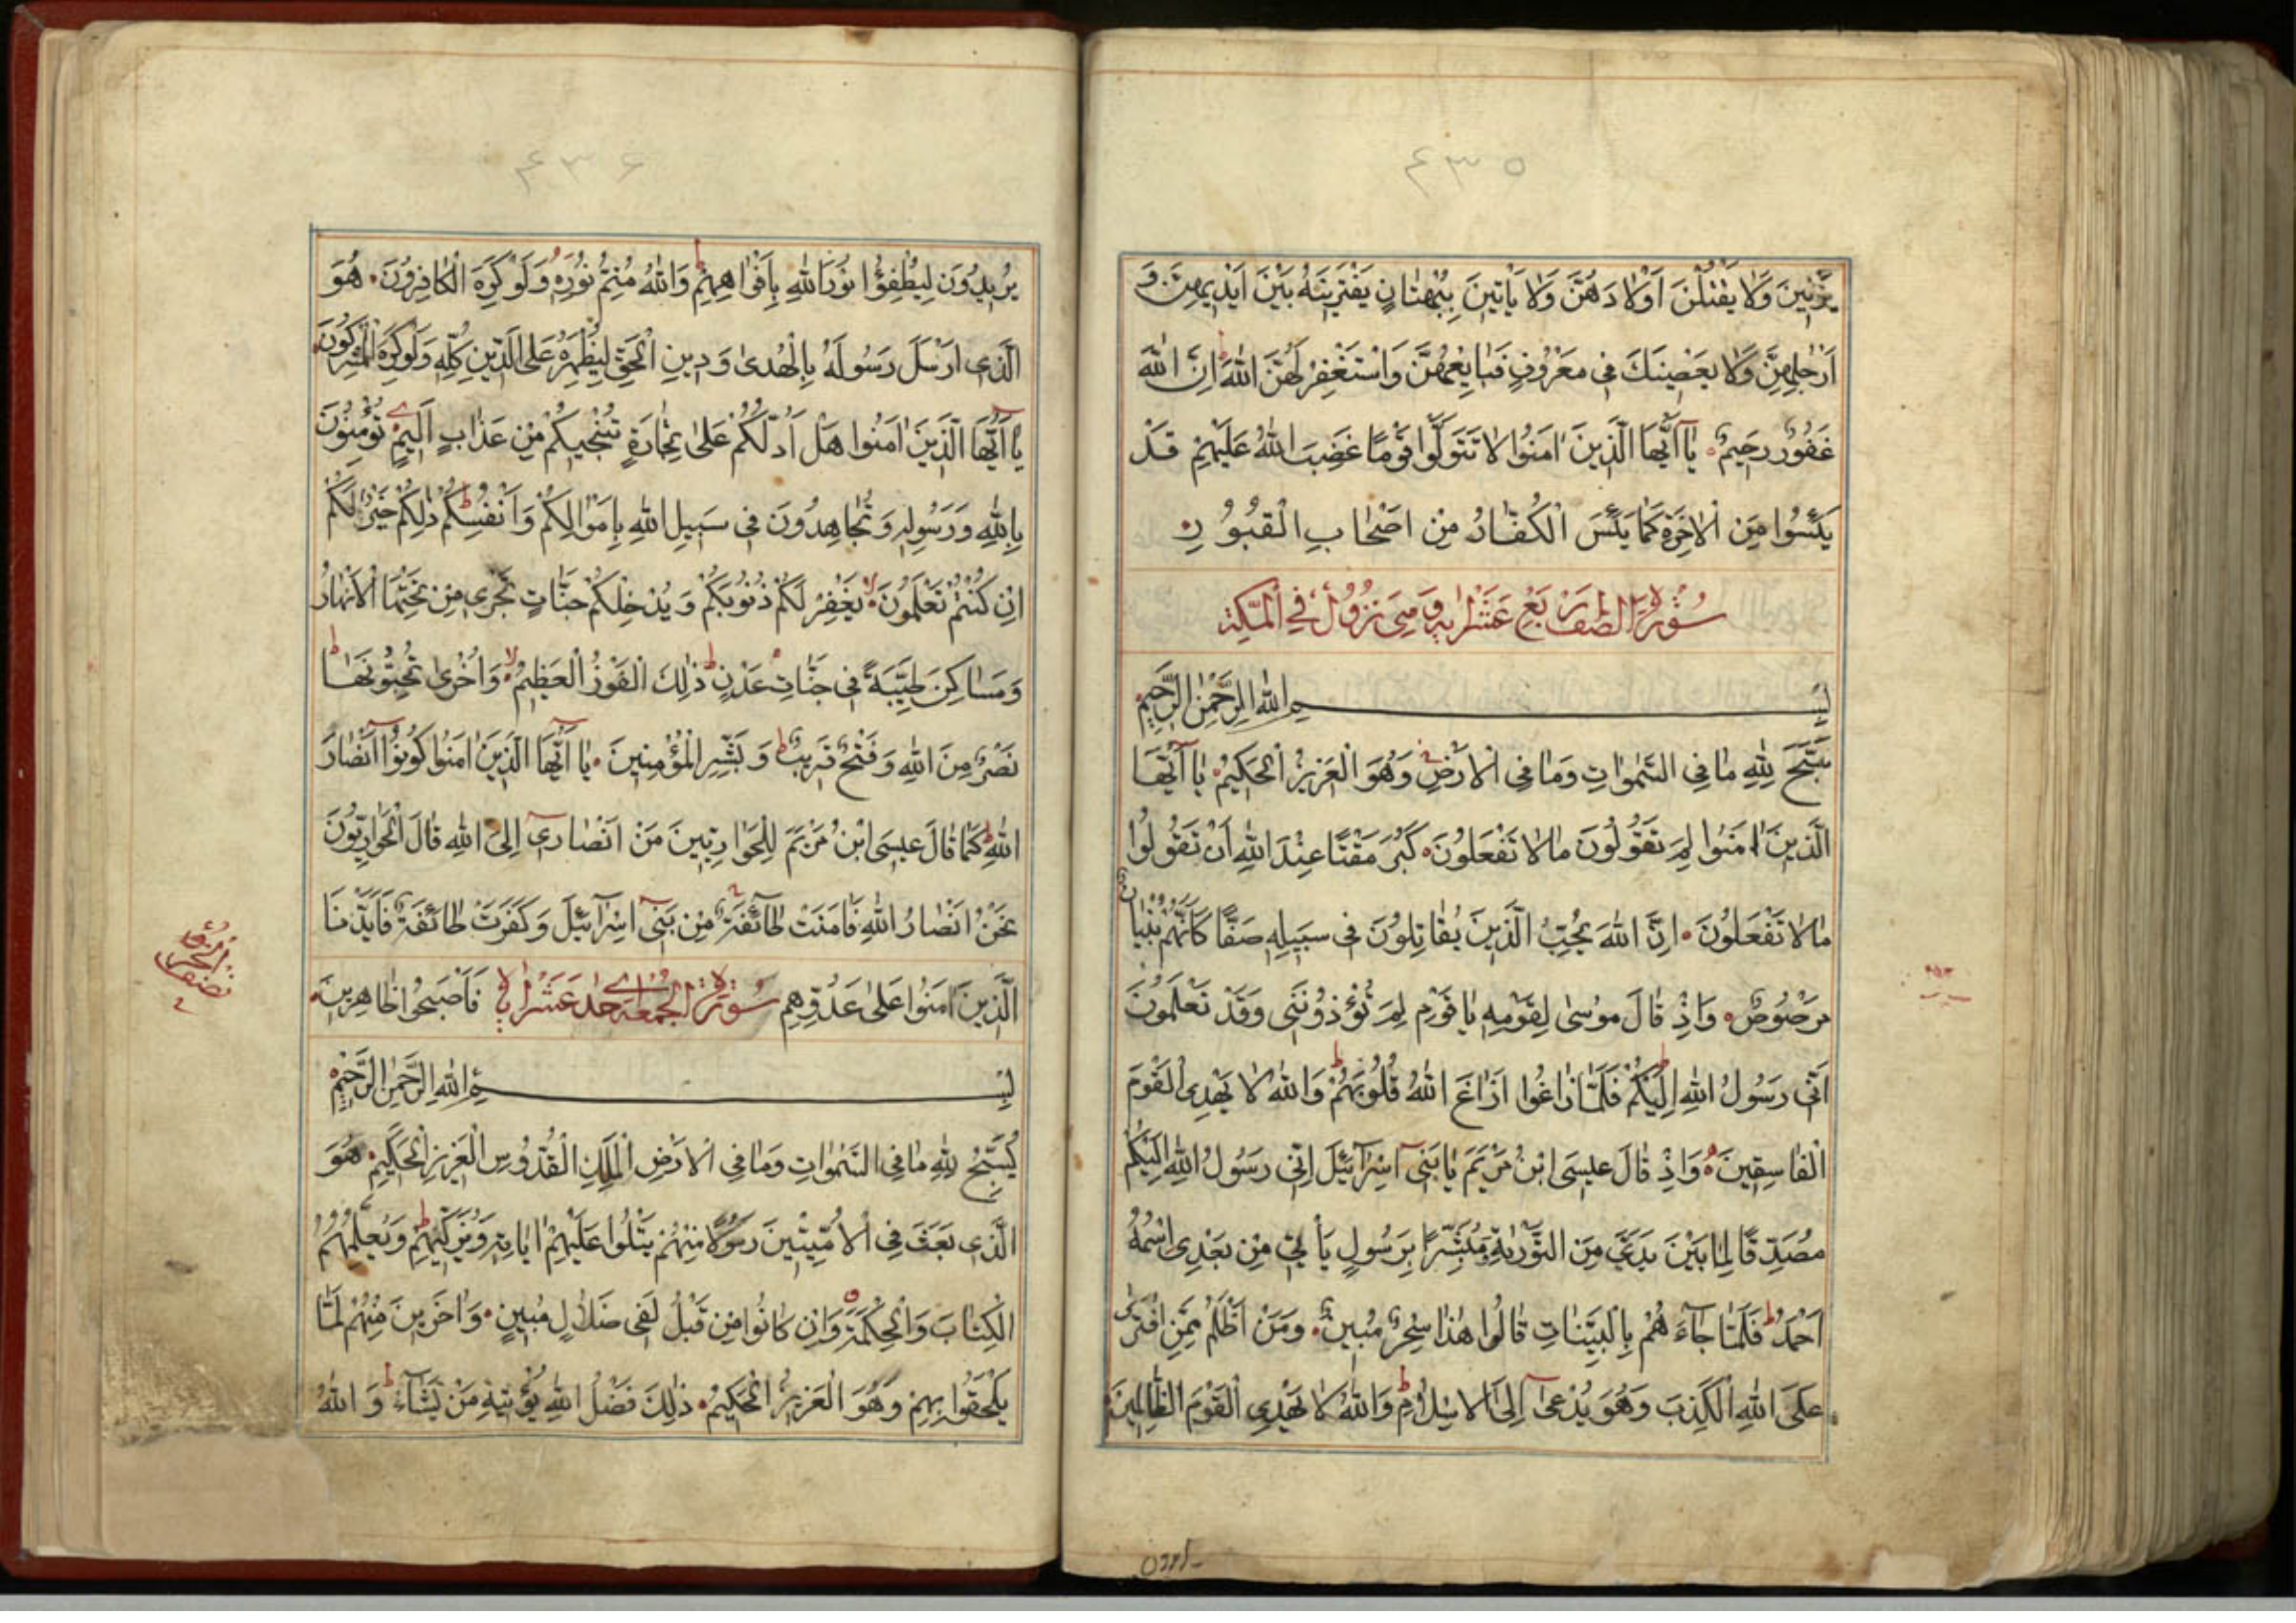 ٤٣٥
يَزْنِينَ وَلَا يَقْتُلْنَ اَوْلَادَهُنَّ وَلَا يَاْتِينَ بِبُهْتَانٍ يَفْتَرِينَهُ بَيْنَ اَيْدِيهِنَّ وَ
اَرْجُلِهِنَّ وَلَا يَعْصِينَكَ فِى مَعْرُوفٍ فَبَايِعْهُنَّ وَاسْتَغْفِرْ لَهُنَّ اللهَ اِنَّ اللهَ
غَفُورٌ رَحِيمٌ يَا اَيُّهَا الَّذِينَ اٰمَنُوا لَا تَتَوَلَّوْا قَوْمًا غَضِبَ اللهُ عَلَيْهِمْ قَدْ
يَئِسُوا مِنَ الْاٰخِرَةِ كَمَا يَئِسَ الْكُفَّارُ مِنْ اَصْحَابِ الْقُبُورِ
سُورَةُ الصف
بِسْمِ اللهِ الرَّحْمٰنِ الرَّحِيمِ
سَبَّحَ لِلّٰهِ مَا فِى السَّمٰوَاتِ وَمَا فِى الْاَرْضِ وَهُوَ الْعَزِيزُ الْحَكِيمُ يَا اَيُّهَا
الَّذِينَ اٰمَنُوا لِمَ تَقُولُونَ مَا لَا تَفْعَلُونَ كَبُرَ مَقْتًا عِنْدَ اللهِ اَنْ تَقُولُوا
مَا لَا تَفْعَلُونَ اِنَّ اللهَ يُحِبُّ الَّذِينَ يُقَاتِلُونَ فِى سَبِيلِهِ صَفًّا كَاَنَّهُمْ بُنْيَانٌ
مَرْصُوصٌ وَاِذْ قَالَ مُوسٰى لِقَوْمِهِ يَا قَوْمِ لِمَ تُؤْذُونَنِى وَقَدْ تَعْلَمُونَ
اَنِّى رَسُولُ اللهِ اِلَيْكُمْ فَلَمَّا زَاغُوا اَزَاغَ اللهُ قُلُوبَهُمْ وَاللهُ لَا يَهْدِى الْقَوْمَ
الْفَاسِقِينَ وَاِذْ قَالَ عِيسَى ابْنُ مَرْيَمَ يَا بَنِى اِسْرَآئِيلَ اِنِّى رَسُولُ اللهِ اِلَيْكُمْ
مُصَدِّقًا لِمَا بَيْنَ يَدَىَّ مِنَ التَّوْرٰيةِ وَمُبَشِّرًا بِرَسُولٍ يَاْتِى مِنْ بَعْدِى اسْمُهُ
اَحْمَدُ فَلَمَّا جَآءَهُمْ بِالْبَيِّنَاتِ قَالُوا هٰذَا سِحْرٌ مُبِينٌ وَمَنْ اَظْلَمُ مِمَّنِ افْتَرٰى
عَلَى اللهِ الْكَذِبَ وَهُوَ يُدْعٰى اِلَى الْاِسْلَامِ وَاللهُ لَا يَهْدِى الْقَوْمَ الظَّالِمِينَ
يريدون
٤٣٦
يُرِيدُونَ لِيُطْفِؤُا نُورَ اللهِ بِاَفْوَاهِهِمْ وَاللهُ مُتِمُّ نُورِهِ وَلَوْ كَرِهَ الْكَافِرُونَ هُوَ
الَّذِى اَرْسَلَ رَسُولَهُ بِالْهُدٰى وَدِينِ الْحَقِّ لِيُظْهِرَهُ عَلَى الدِّينِ كُلِّهِ وَلَوْ كَرِهَ الْمُشْرِكُونَ
يَا اَيُّهَا الَّذِينَ اٰمَنُوا هَلْ اَدُلُّكُمْ عَلٰى تِجَارَةٍ تُنْجِيكُمْ مِنْ عَذَابٍ اَلِيمٍ تُؤْمِنُونَ
بِاللهِ وَرَسُولِهِ وَتُجَاهِدُونَ فِى سَبِيلِ اللهِ بِاَمْوَالِكُمْ وَاَنْفُسِكُمْ ذٰلِكُمْ خَيْرٌ لَكُمْ
اِنْ كُنْتُمْ تَعْلَمُونَ يَغْفِرْ لَكُمْ ذُنُوبَكُمْ وَيُدْخِلْكُمْ جَنَّاتٍ تَجْرِى مِنْ تَحْتِهَا الْاَنْهَارُ
وَمَسَاكِنَ طَيِّبَةً فِى جَنَّاتِ عَدْنٍ ذٰلِكَ الْفَوْزُ الْعَظِيمُ وَاُخْرٰى تُحِبُّونَهَا
نَصْرٌ مِنَ اللهِ وَفَتْحٌ قَرِيبٌ وَبَشِّرِ الْمُؤْمِنِينَ يَا اَيُّهَا الَّذِينَ اٰمَنُوا كُونُوا اَنْصَارَ
اللهِ كَمَا قَالَ عِيسَى ابْنُ مَرْيَمَ لِلْحَوَارِيِّينَ مَنْ اَنْصَارِى اِلَى اللهِ قَالَ الْحَوَارِيُّونَ
نَحْنُ اَنْصَارُ اللهِ فَاٰمَنَتْ طَآئِفَةٌ مِنْ بَنِى اِسْرَآئِيلَ وَكَفَرَتْ طَائِفَةٌ فَاَيَّدْنَا
الَّذِينَ اٰمَنُوا عَلٰى عَدُوِّهِمْ سُورَةُ الجمعة فَاَصْبَحُوا ظَاهِرِينَ
بِسْمِ اللهِ الرَّحْمٰنِ الرَّحِيمِ
يُسَبِّحُ لِلّٰهِ مَا فِى السَّمٰوَاتِ وَمَا فِى الْاَرْضِ الْمَلِكِ الْقُدُّوسِ الْعَزِيزِ الْحَكِيمِ هُوَ
الَّذِى بَعَثَ فِى الْاُمِّيِّينَ رَسُولًا مِنْهُمْ يَتْلُوا عَلَيْهِمْ اٰيَاتِهِ وَيُزَكِّيهِمْ وَيُعَلِّمُهُمُ
الْكِتَابَ وَالْحِكْمَةَ وَاِنْ كَانُوا مِنْ قَبْلُ لَفِى ضَلَالٍ مُبِينٍ وَاٰخَرِينَ مِنْهُمْ لَمَّا
يَلْحَقُوا بِهِمْ وَهُوَ الْعَزِيزُ الْحَكِيمُ ذٰلِكَ فَضْلُ اللهِ يُؤْتِيهِ مَنْ يَشَآءُ وَاللهُ